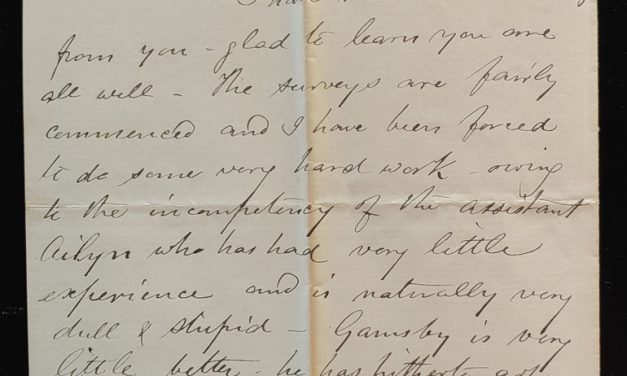 I have
from you - glad to learn you are
all well - The surveys are fairly
commenced and I have been forced
to do some very hard work - owing
to the incompetency of the assistant
Ailyn who has had very little
experience and is naturally very
dull & stupid - Gamsby is very
little better - he has hitherto got